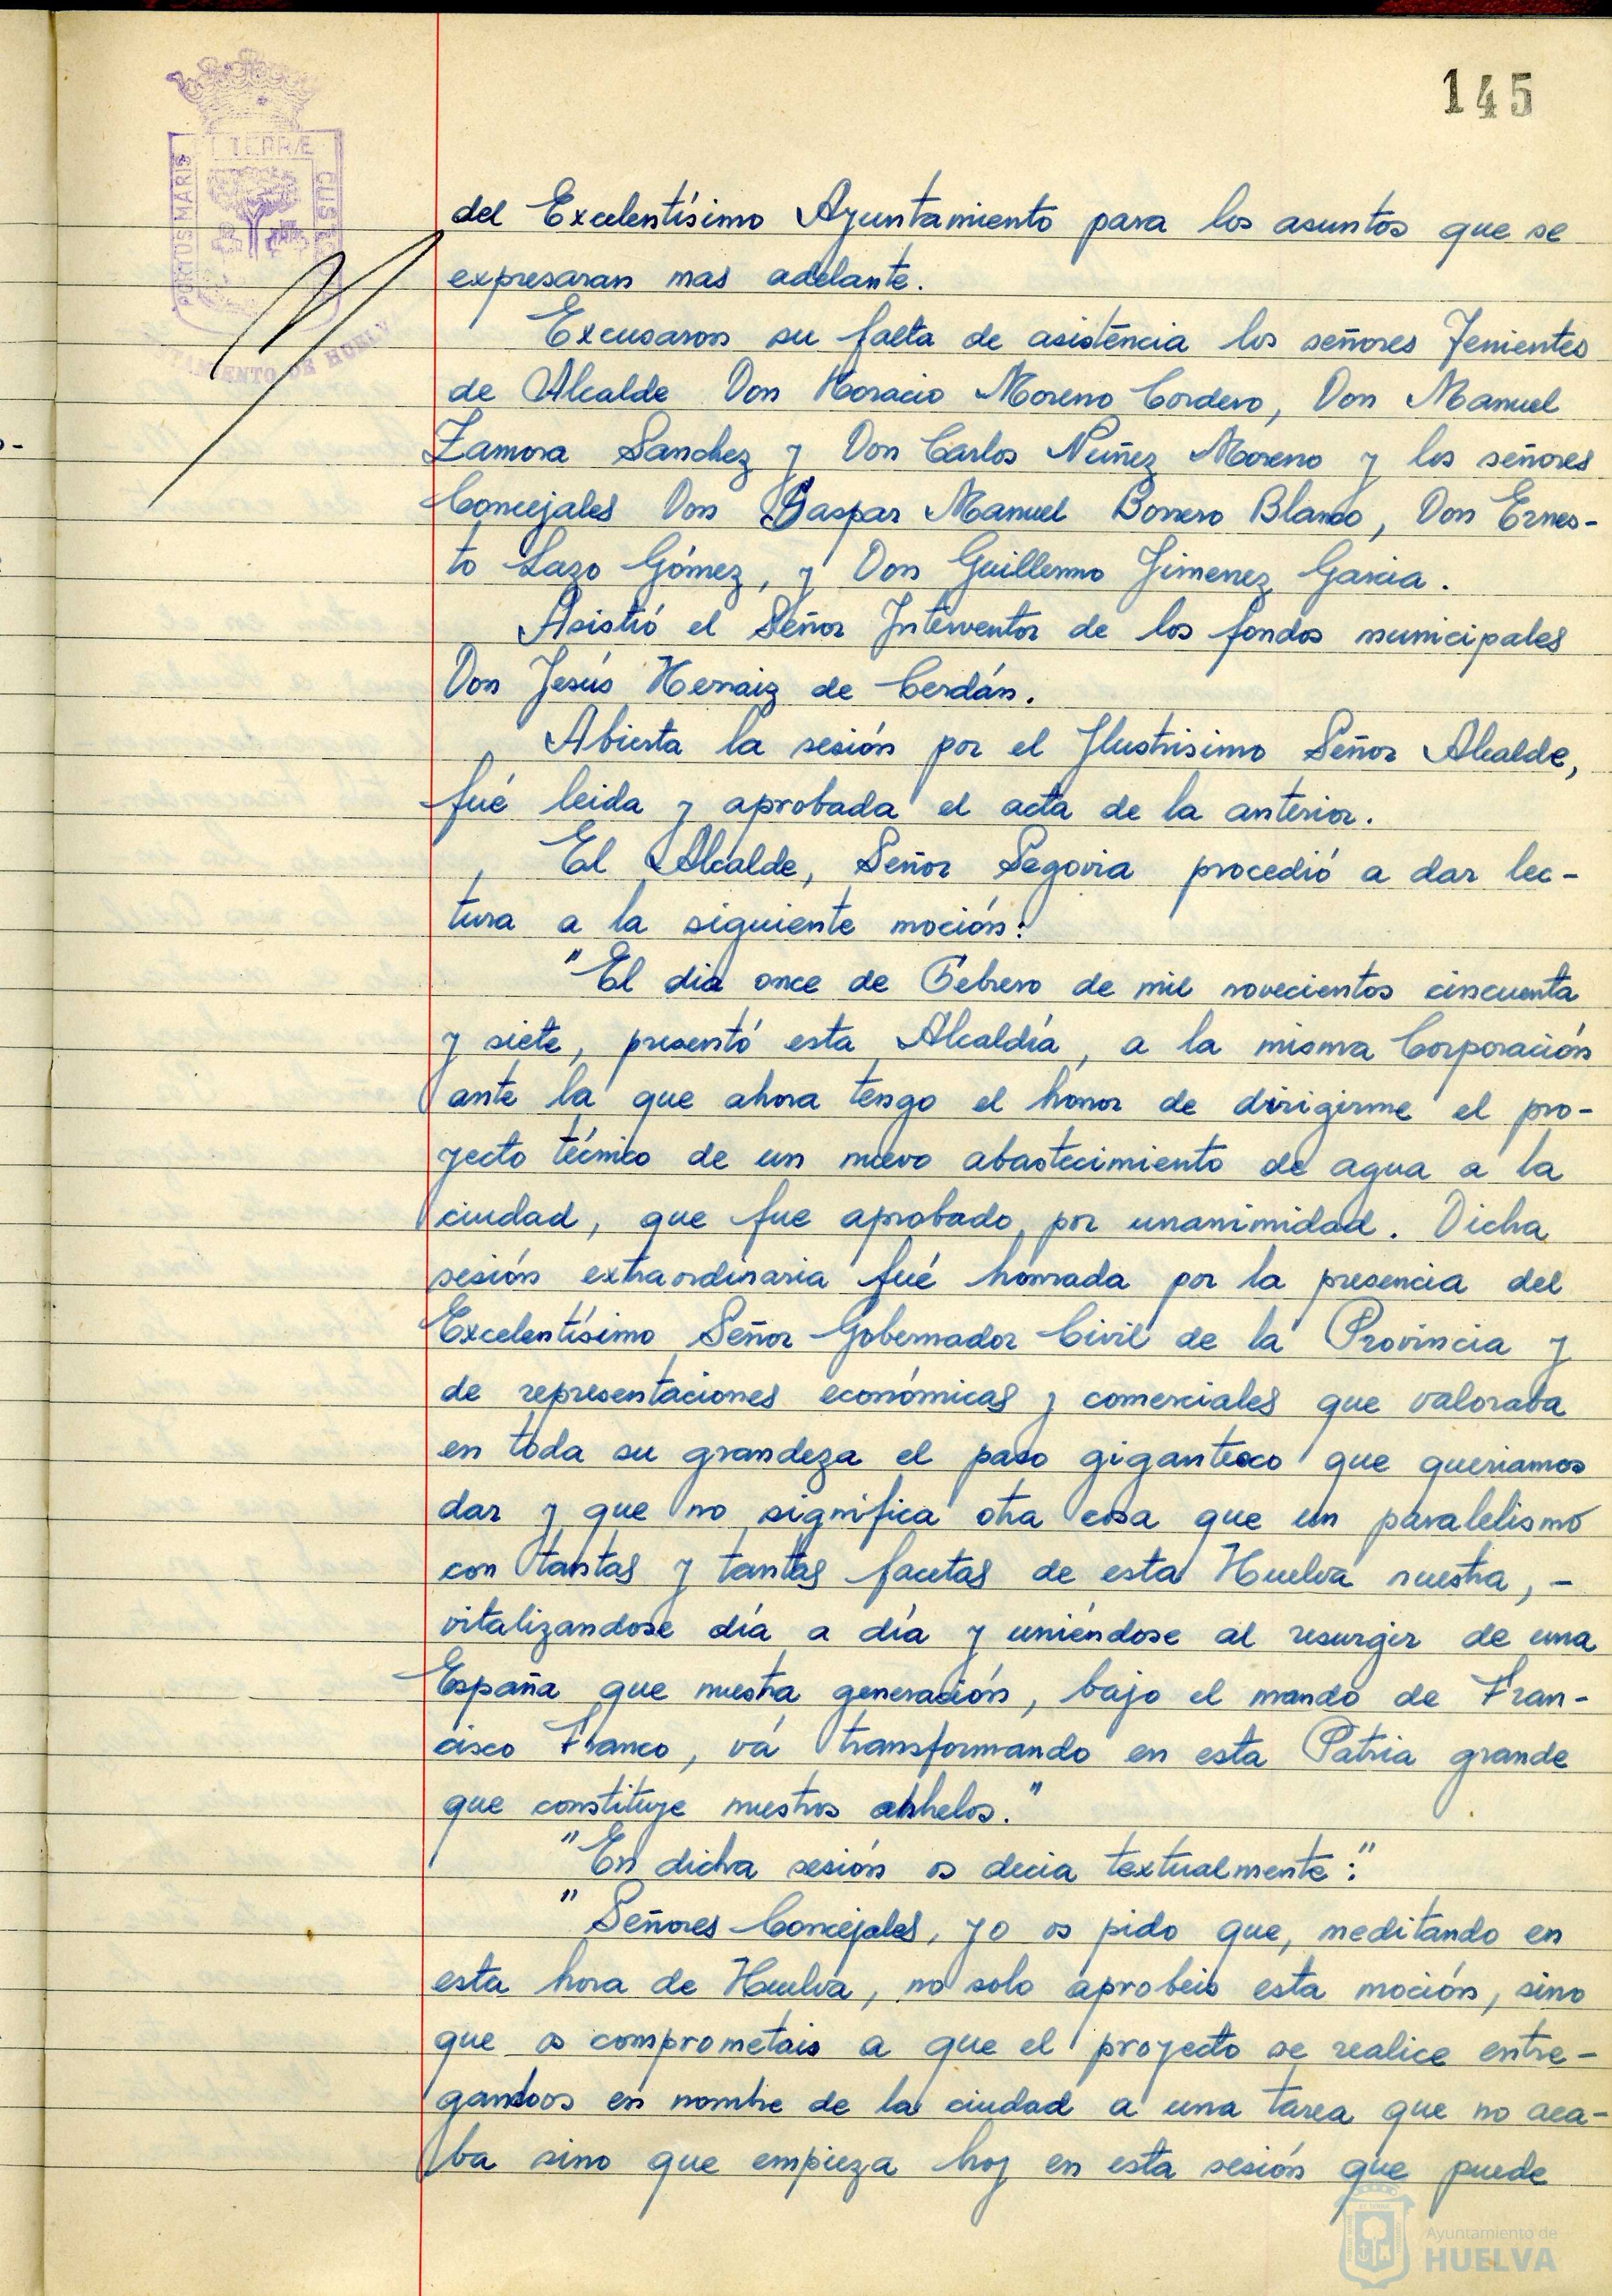 145
TERRÆ
PORTUS MARIS
CUSTO
NTAMIENTO DE HUELV
del Excelentísimo Ayuntamiento para los asuntos que se
expresaran mas adelante.
Excusaron su falta de asistencia los señores Tenientes
de Alcalde Don Horacio Moreno Cordero, Don Manuel
Zamora Sanchez y Don Carlos Nuñez Moreno y los señores
Concejales Don Gaspar Manuel Borrero Blanco, Don Ernes-
to Lazo Gómez, y Don Guillermo Jimenez Garcia.
Asistió el Señor Interventor de los fondos municipales
Don Jesús Hernaiz de Cerdán.
Abierta la sesión por el Ilustrisimo Señor Alcalde,
fué leida y aprobada el acta de la anterior.
El Alcalde, Señor Segovia procedió a dar lec-
tura a la siguiente moción:
"El dia once de Febrero de mil novecientos cincuenta
y siete, presentó esta Alcaldía, a la misma Corporación
ante la que ahora tengo el honor de dirigirme el pro-
yecto técnico de un nuevo abastecimiento de agua a la
ciudad, que fue aprobado por unanimidad. Dicha
sesión extraordinaria fué honrada por la presencia del
Excelentísimo Señor Gobernador Civil de la Provincia y
de representaciones económicas y comerciales que valoraba
en toda su grandeza el paso gigantesco que queriamos
dar y que no significa otra cosa que un paralelismo
con tantas y tantas facetas de esta Huelva nuestra, -
vitalizandose día a día y uniéndose al resurgir de una
España que nuestra generación, bajo el mando de Fran-
cisco Franco, vá transformando en esta Patria grande
que constituye nuestros anhelos."
"En dicha sesión os decia textualmente:"
"Señores Concejales, yo os pido que, meditando en
esta hora de Huelva, no solo aprobeis esta moción, sino
que os comprometais a que el proyecto se realice entre-
gandoos en nombre de la ciudad a una tarea que no aca-
ba sino que empieza hoy en esta sesión que puede
Ayuntamiento de
HUELVA